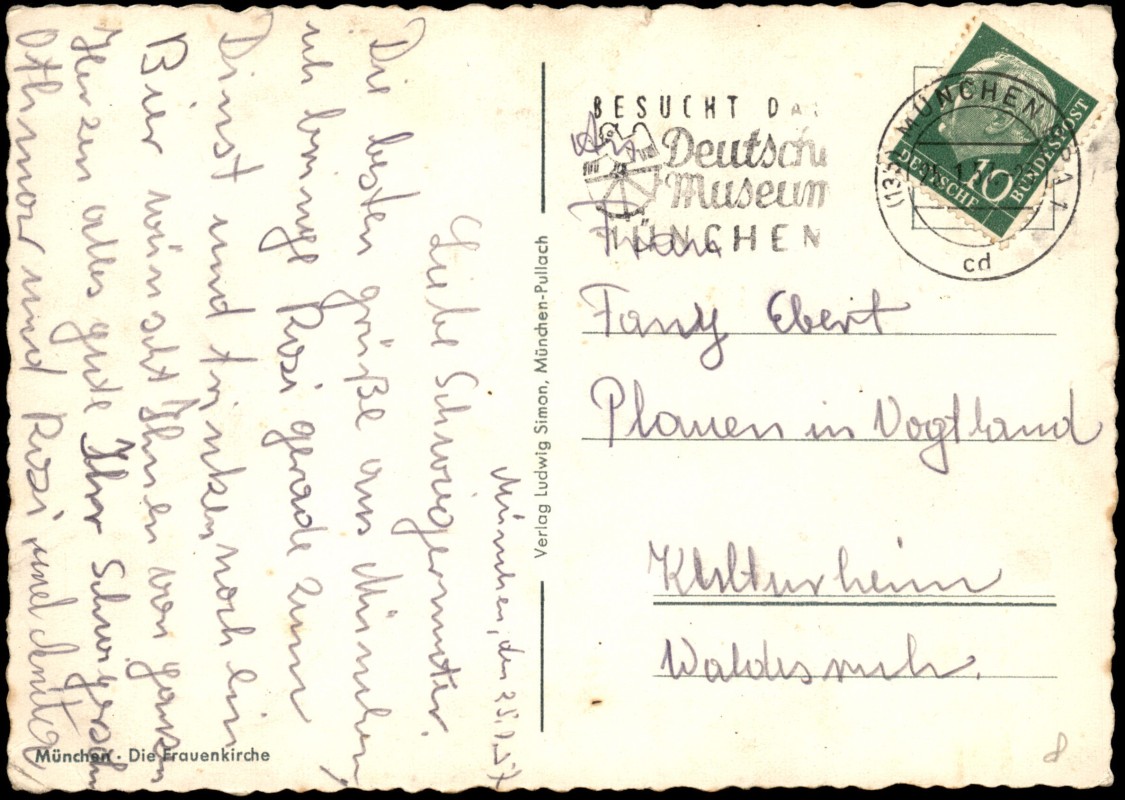 München, den 25.1.57
Liebe Schwiegermutter.
Die besten grüße aus München,
ich bringe Rosi gerade zum
Dinst und trinken noch ein
Bier wünscht Ihnen von ganzen
Herzen alles gude Ihr Schwigersohn
Othmar und Rosi und
München · Die Frauenkirche
Verlag Ludwig Simon, München-Pullach
BESUCHT DAS
Deutsche
Museum
MÜNCHEN
(13b) MÜNCHEN BP 1
cd
10
DEUTSCHE BUNDESPOST
An
Frau
Fany Ebert
Plauen in Vogtland
Kulturheim
Waldesruh.
8